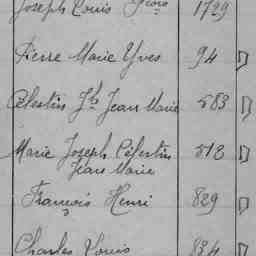 Joseph Louis Frois 1729
Pierre Marie Yves 94 D
Célestin Jh Jean Marie 583 D
Marie Joseph Célestin 513 D
Jean Marie
François Henri 829 D
Charles Louis 834 D